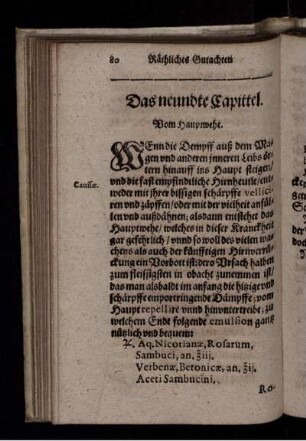 80 Räthliches Gutachten
Das neundte Capittel.
Vom Hauptwehe.
WEnn die Dempff auß dem Ma-
gen vnd anderen inneren Leibs ör-
tern hinauff ins Haupt steigen /
Causæ. vnd die fast empfindliche Hirnheutle / ent-
weder mit jhrer bissigen schärpffe vellici-
ren vnd zäpffen / oder mit der vielheit anfül-
len vnd außdähnen; alsdann entstehet das
Hauptwehe / welches in dieser Kranckheit
gar gefehrlich / vnnd so woll des vielen wa-
chens als auch der künfftigen Hirnverru-
ckung ein Vorbott ist: ders Vrsach halben
zum fleissigsten in obacht zunemmen ist /
das man alsbaldt im anfang die hitzige vnd
schärpffe emportringende Dämpffe / vom
Haupt repellire vnnd hinvntertreibe; zu
welchem Endt folgende emulsion gantz
nützlich vnd bequem:
℞. Aq. Nicotianæ, Rosarum,
Sambuci, an. ℥iij.
Verbenæ, Betonicæ, an. ℥ij.
Aceti Sambucini,
Ro-